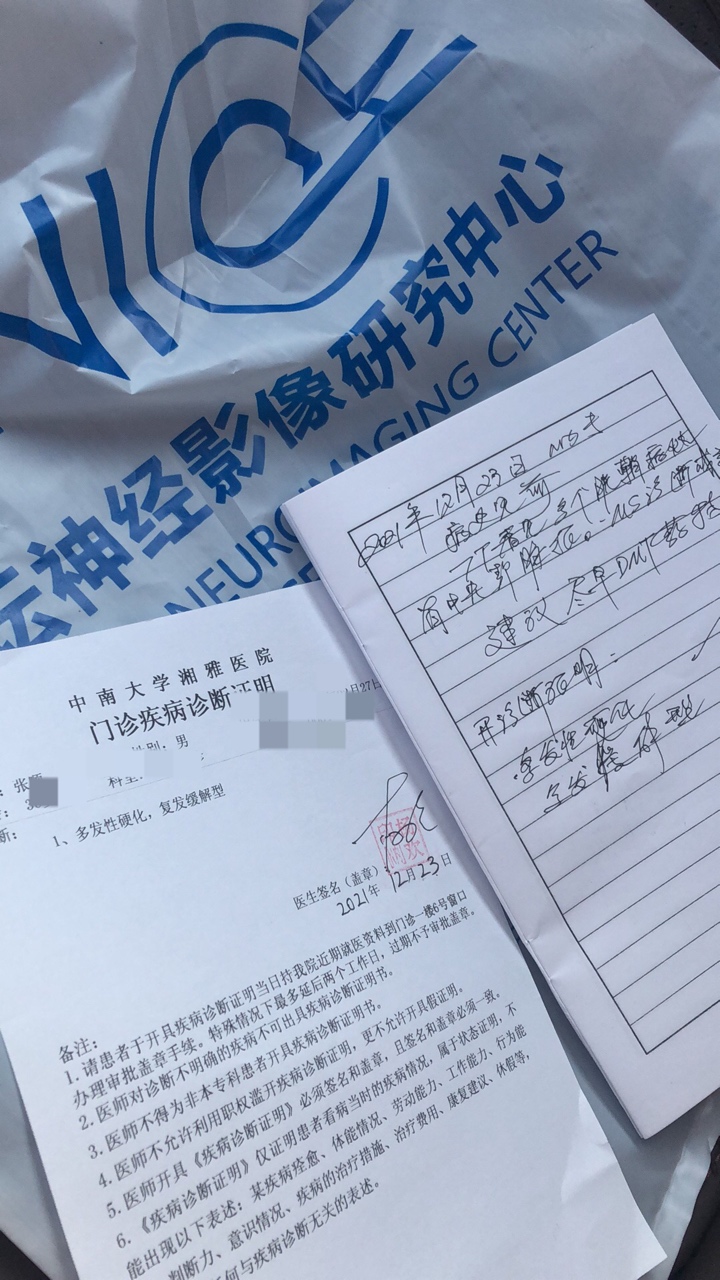 神经影像研究中心
NEUROIMAGING CENTER
2021年12月23日 MS
病史同前
有中央静脉征。MS诊断
建议尽早DMT
开诊断证明:
多发性硬化
复发缓解型
中南大学湘雅医院
门诊疾病诊断证明
月27
性别: 男
: 张
科室:
断:
1、多发性硬化, 复发缓解型
医生签名（盖章）
2021年12月23日
备注:
1. 请患者于开具疾病诊断证明当日持我院近期就医资料到门诊一楼6号窗口
办理审批盖章手续。特殊情况下最多延后两个工作日, 过期不予审批盖章。
2. 医师对诊断不明确的疾病不可出具疾病诊断证明书。
3. 医师不得为非本专科患者开具疾病诊断证明书。
4. 医师不允许利用职权滥开疾病诊断证明, 更不允许开具假证明。
5. 医师开具《疾病诊断证明》必须签名和盖章, 且签名和盖章必须一致。
6. 《疾病诊断证明》仅证明患者看病当时的疾病情况, 属于状态证明, 不
能出现以下表述: 某疾病痊愈、体能情况、劳动能力、工作能力、行为能
判断力、意识情况、疾病的治疗措施、治疗费用、康复建议、休假等,
何与疾病诊断无关的表述。